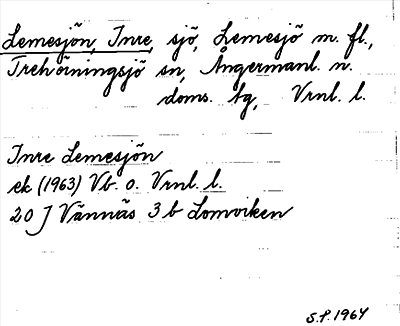 Lemesjön, Inre, sjö, Lemesjö m. fl.,
Trehörningsjö sn, Ångermanl. n.
doms. tg, Vrnl. l.
Inre Lemesjön
ek (1963) Vb. o. Vrnl. l.
20 J Vännäs 3 b Lomviken
S.P. 1967